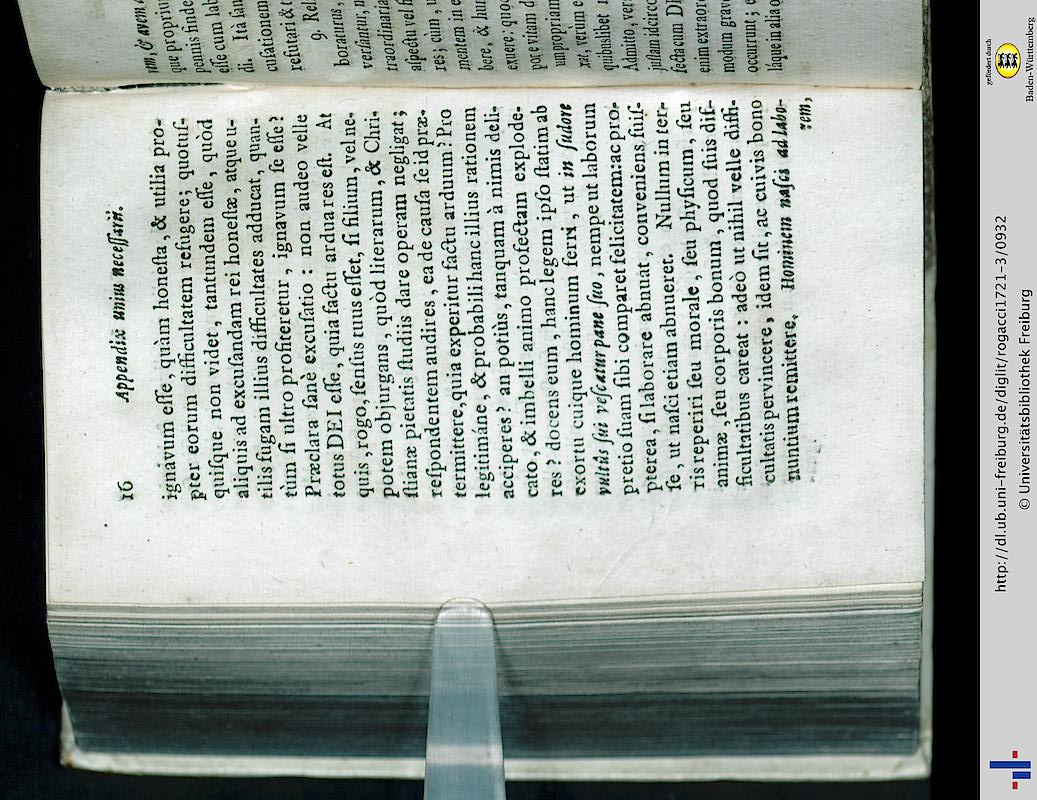 16 Appendix unius necessarii.
ignavum esse, quàm honesta, & utilia pro-
pter eorum difficultatem refugere; quotus-
quisque non videt, tantundem esse, quòd
aliquis ad excusandam rei honestæ, atque u-
tilis fugam illius difficultates adducat, quan-
tum si ultro profiteretur, ignavum se esse?
Præclara sanè excusatio: non audeo velle
totus DEI esse, quia factu ardua res est. At
quis, rogo, sensus tuus esset, si filium, vel ne-
potem objurgans, quòd literarum, & Chri-
stianæ pietatis studiis dare operam negligat;
respondentem audires, ea de causa se id præ-
termittere, quia experitur factu arduum? Pro
legitimáne, & probabili hanc illius rationem
acciperes? an potiùs, tanquam à nimis deli-
cato, & imbelli animo profectam explode-
res? docens eum, hanc legem ipso statim ab
exortu cuique hominum ferri, ut in sudore
vultûs sui vescatur pane suo, nempe ut laborum
pretio suam sibi comparet felicitatem: ac pro-
pterea, si laborare abnuat, conveniens fuis-
se, ut nasci etiam abnueret. Nullum in ter-
ris reperiri seu morale, seu physicum, seu
animæ, seu corporis bonum, quod suis dif-
ficultatibus careat: adeò ut nihil velle diffi-
cultatis pervincere, idem sit, ac cuivis bono
nuntium remittere. Hominem nasci ad labo-
rem,
um, & avem
que propriu
pennis finde
esse cum lab
di. Ità san
cusationem
refutari & t
9. Rel
boraturus,
versantur, n
traordinaria
aspectu vel
res; cum, u
mentem in e
bere, & hu
exuere: quo
pore vitam d
um proprium
rat, verùm e
quibuslibet
Admitto, ver
justam idcirco
fecta cum DE
enim extraor
modum grav
occurrunt; e
láque in alia o
http://dl.ub.uni-freiburg.de/diglit/rogacci1721-3/0932
© Universitätsbibliothek Freiburg
gefördert durch
Baden-Württemberg